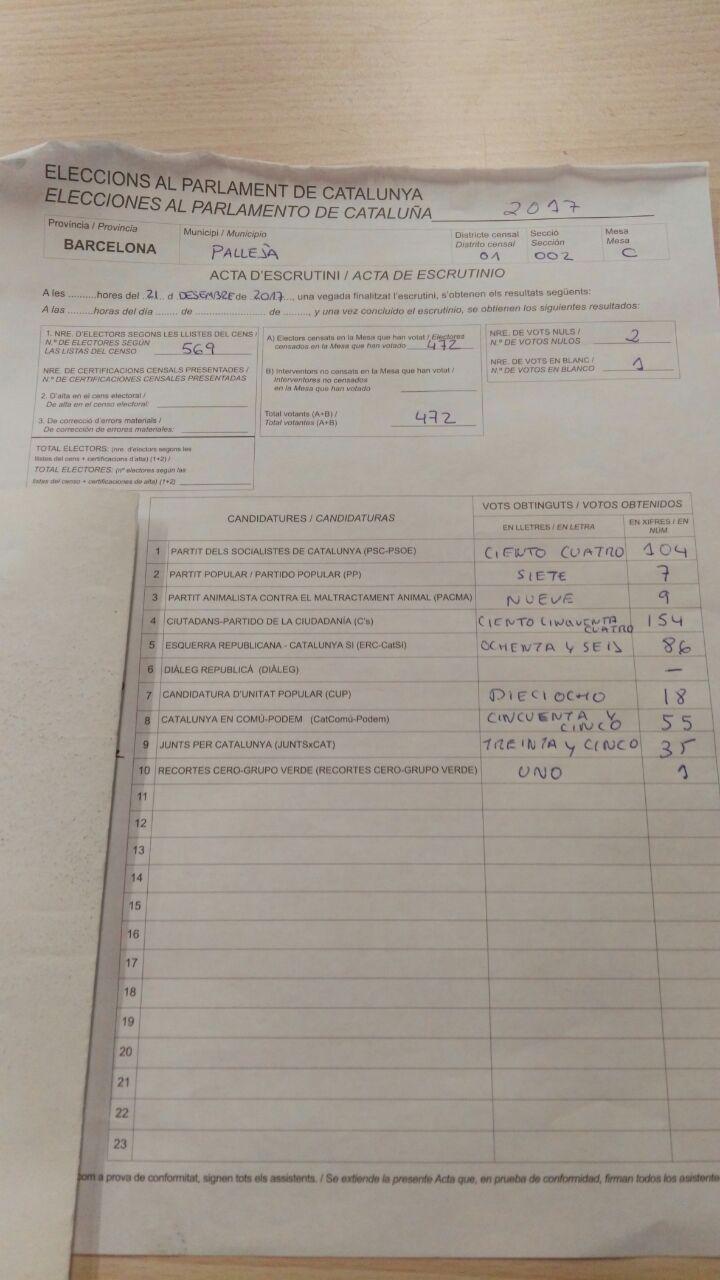 ELECCIONS AL PARLAMENT DE CATALUNYA
ELECCIONES AL PARLAMENTO DE CATALUÑA 2017
Província / Provincia
BARCELONA
Municipi / Municipio
PALLEJÀ
Districte censal
Distrito censal
01
Secció
Sección
002
Mesa
Mesa
C
ACTA D'ESCRUTINI / ACTA DE ESCRUTINIO
A les ..........hores del .21. d DESEMBRE de .2017..., una vegada finalitzat l'escrutini, s'obtenen els resultats següents:
A las ........hores del día ...... de .................... de ........., y una vez concluido el escrutinio, se obtienen los siguientes resultados:
1. NRE. D'ELECTORS SEGONS LES LLISTES DEL CENS /
N.º DE ELECTORES SEGÚN
LAS LISTAS DEL CENSO 569
NRE. DE CERTIFICACIONS CENSALS PRESENTADES /
N.º DE CERTIFICACIONES CENSALES PRESENTADAS
2. D'alta en el cens electoral /
De alta en el censo electoral:
3. De correcció d'errors materials /
De corrección de errores materiales:
TOTAL ELECTORS: (nre. d'electors segons les
llistes del cens + certificacions d'alta) (1+2) /
TOTAL ELECTORES: (nº electores según las
listas del censo + certificaciones de alta) (1+2)
A) Electors censats en la Mesa que han votat / Electores
censados en la Mesa que han votado 472
B) Interventors no censats en la Mesa que han votat /
Interventores no censados
en la Mesa que han votado
Total votants (A+B) /
Total votantes (A+B) 472
NRE. DE VOTS NULS /
N.º DE VOTOS NULOS 2
NRE. DE VOTS EN BLANC /
N.º DE VOTOS EN BLANCO 1
CANDIDATURES / CANDIDATURAS
VOTS OBTINGUTS / VOTOS OBTENIDOS
EN LLETRES / EN LETRA
EN XIFRES / EN
NÚM.
1 PARTIT DELS SOCIALISTES DE CATALUNYA (PSC-PSOE) CIENTO CUATRO 104
2 PARTIT POPULAR / PARTIDO POPULAR (PP) SIETE 7
3 PARTIT ANIMALISTA CONTRA EL MALTRACTAMENT ANIMAL (PACMA) NUEVE 9
4 CIUTADANS-PARTIDO DE LA CIUDADANÍA (C's) CIENTO CINQUENTA CUATRO 154
5 ESQUERRA REPUBLICANA - CATALUNYA SI (ERC-CatSí) OCHENTA Y SEIS 86
6 DIÀLEG REPUBLICÀ (DIÀLEG) —
7 CANDIDATURA D'UNITAT POPULAR (CUP) DIECIOCHO 18
8 CATALUNYA EN COMÚ-PODEM (CatComú-Podem) CINCUENTA Y CINCO 55
9 JUNTS PER CATALUNYA (JUNTSxCAT) TREINTA Y CINCO 35
10 RECORTES CERO-GRUPO VERDE (RECORTES CERO-GRUPO VERDE) UNO 1
11
12
13
14
15
16
17
18
19
20
21
22
23
com a prova de conformitat, signen tots els assistents. / Se extiende la presente Acta que, en prueba de conformidad, firman todos los asistente